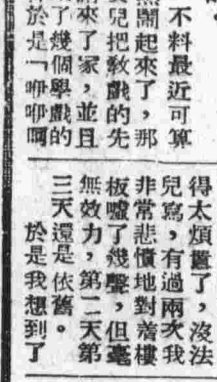 不料最近可算
熱鬧起來了，那
兒把敎戲的先
來了家，並且
了幾個學戲的
於是「咿咿啊
得太煩囂了，沒法
兒寫，有過兩次我
非常悲憤地對着樓
板噓了幾聲，但毫
無效力，第二天第
三天還是依舊。
於是我想到了